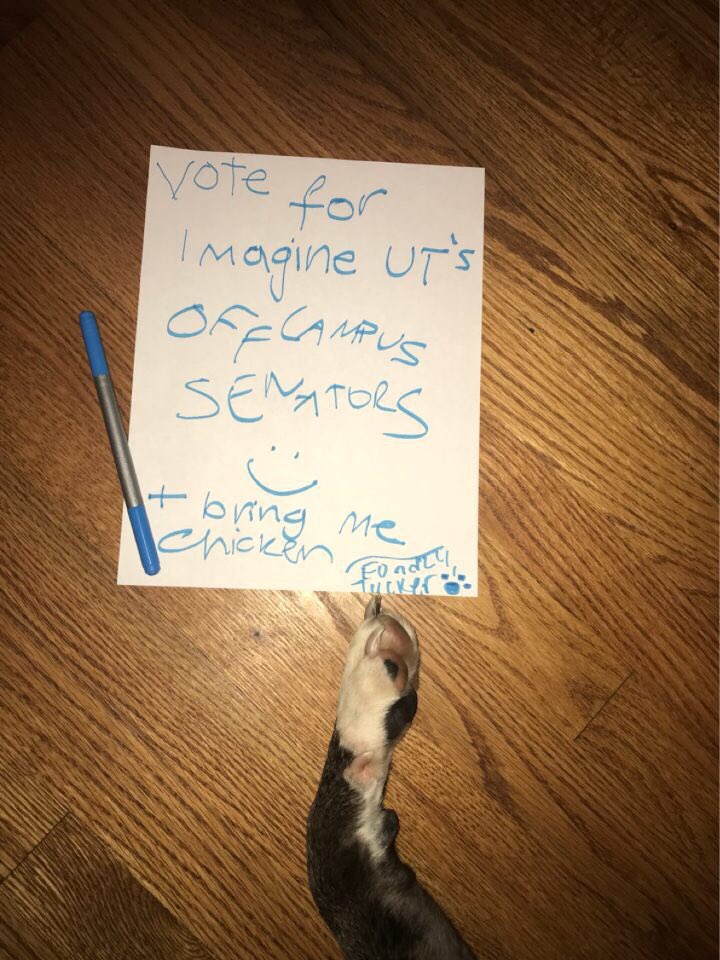 Vote for
Imagine UT's
OFF CAMPUS
SENATORS
+ bring me
chicken
Fondly,
Tucker